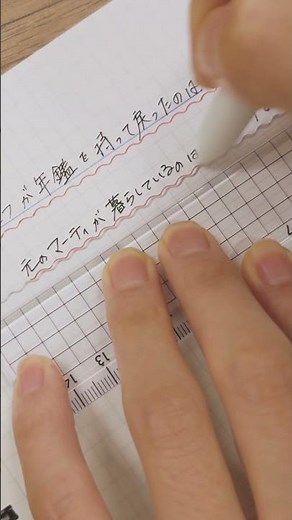 フが年鑑を持って戻ったのは
元のマーティが暮らしているのは
14 13